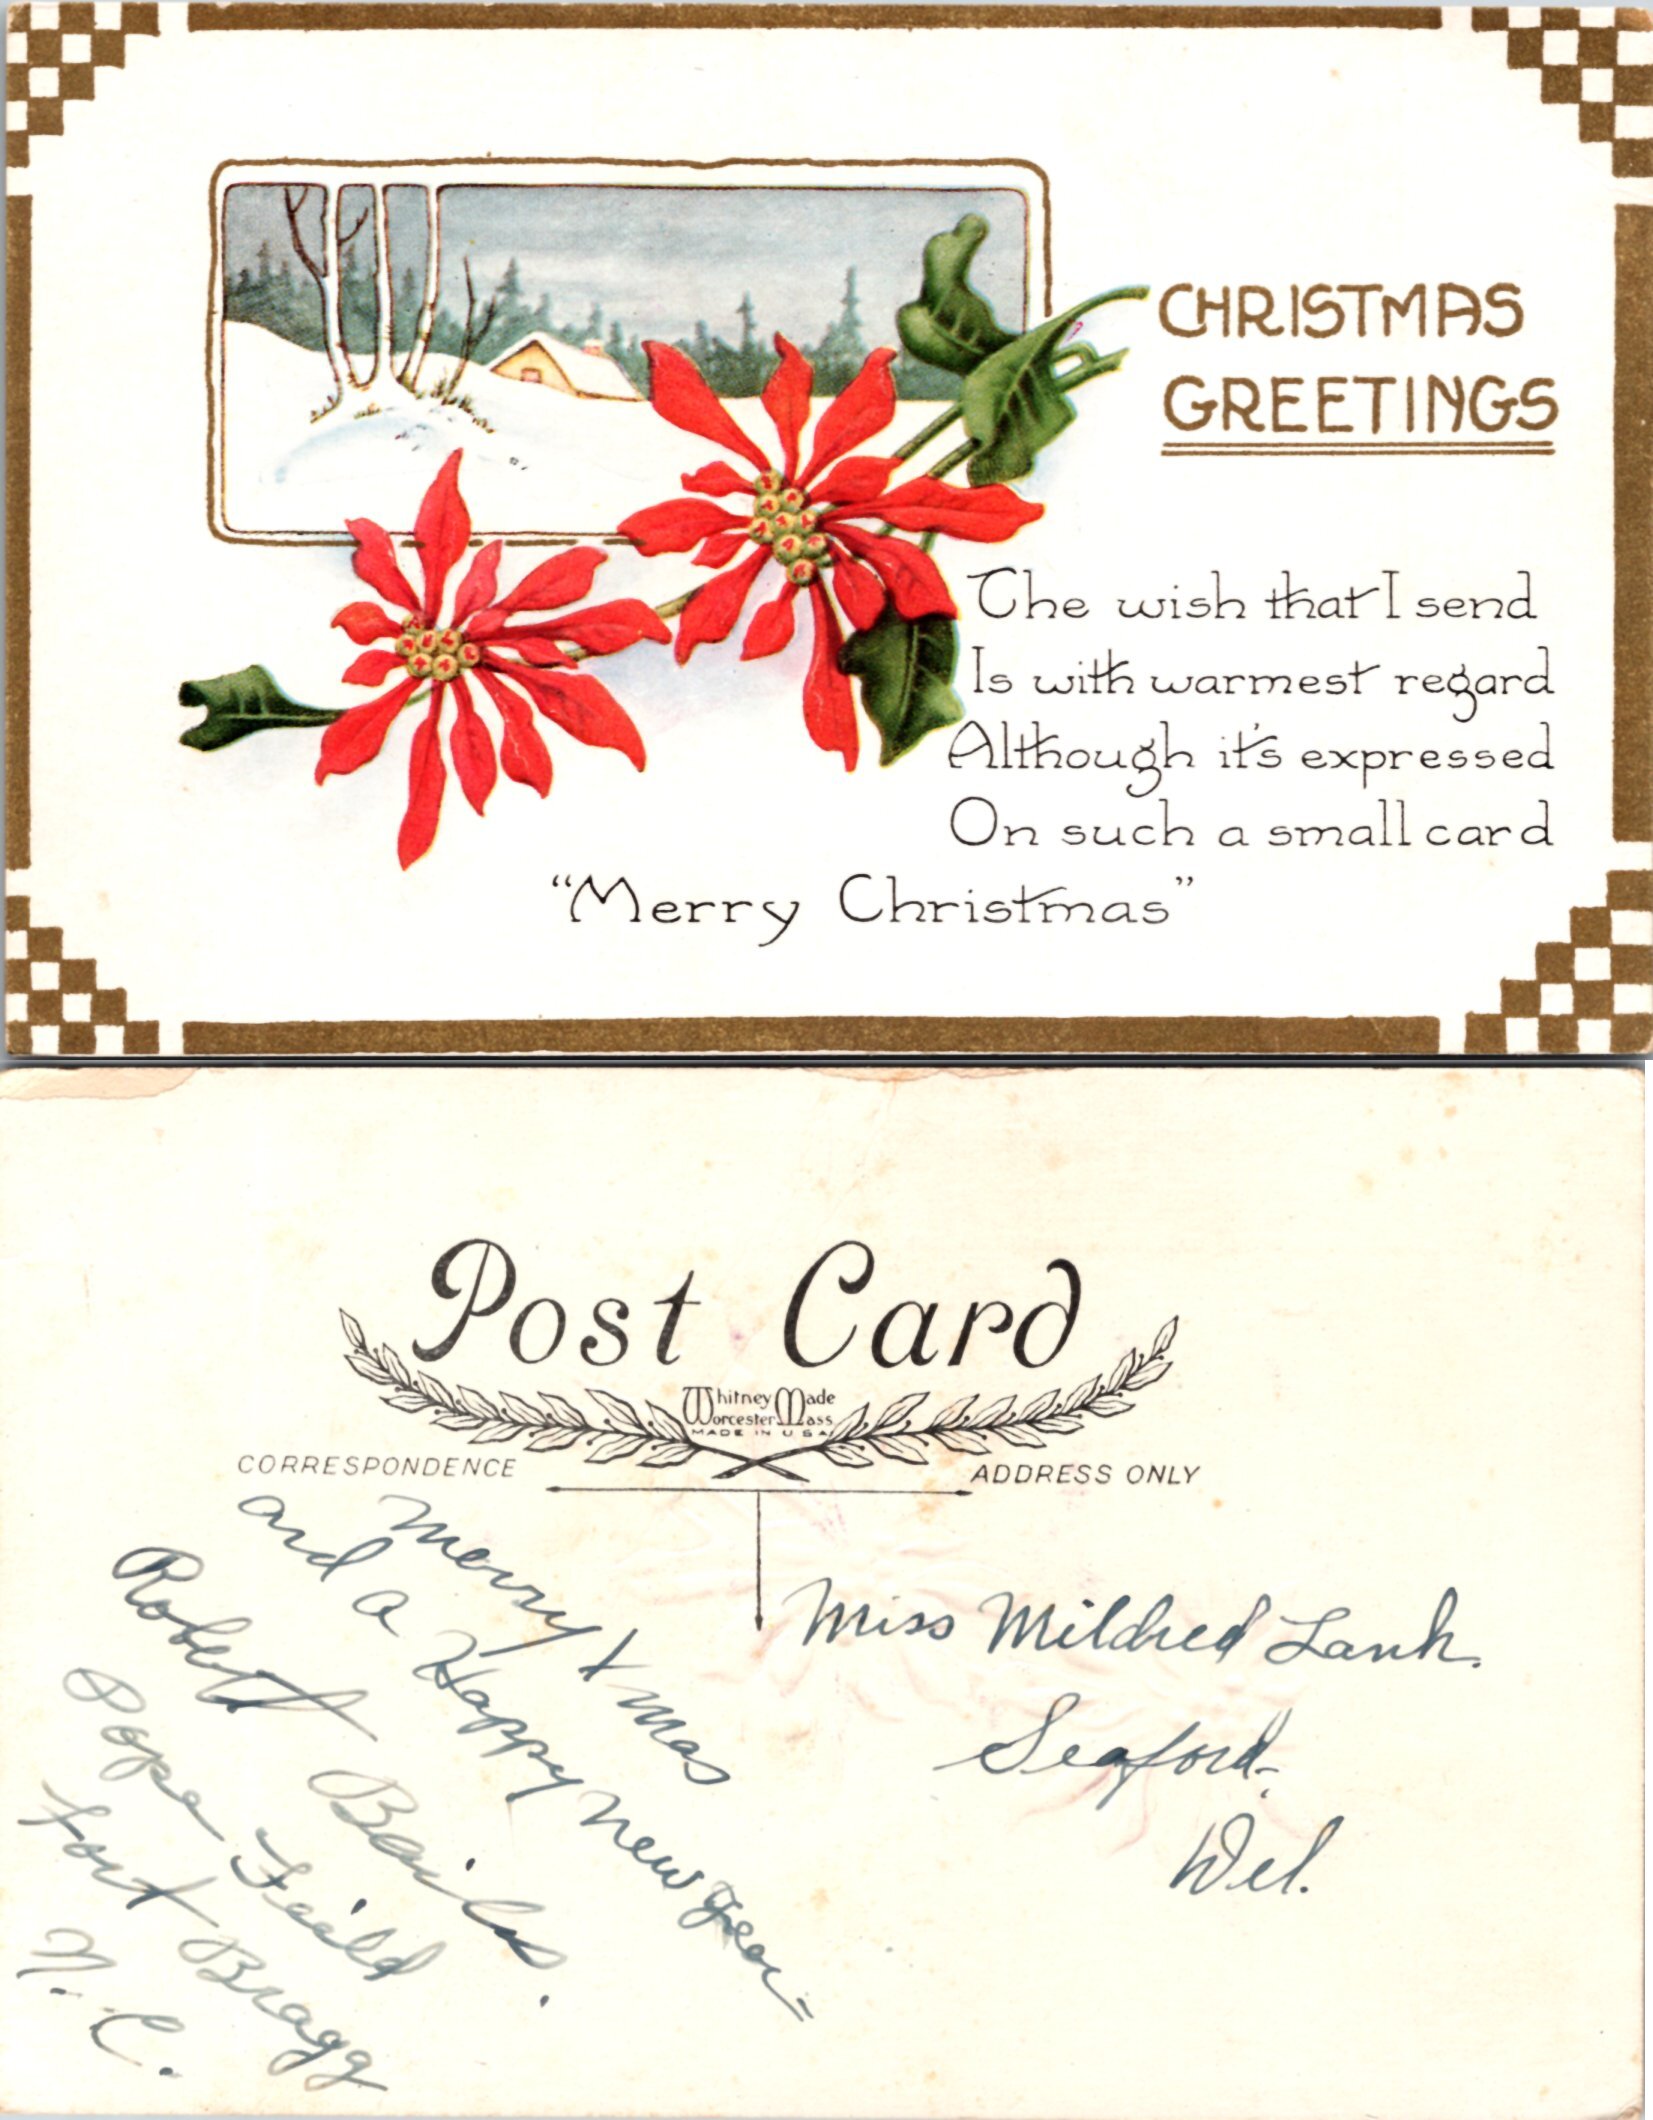 CHRISTMAS
GREETINGS
The wish that I send
Is with warmest regard
Although it's expressed
On such a small card
"Merry Christmas"
Post Card
Whitney Made
Worcester Mass
MADE IN U S A
CORRESPONDENCE
ADDRESS ONLY
Merry Xmas
and a Happy New Year
Robert
Pope Feild
Fort Bragg
N. C.
Miss Mildred Lank.
Seaford,
Del.